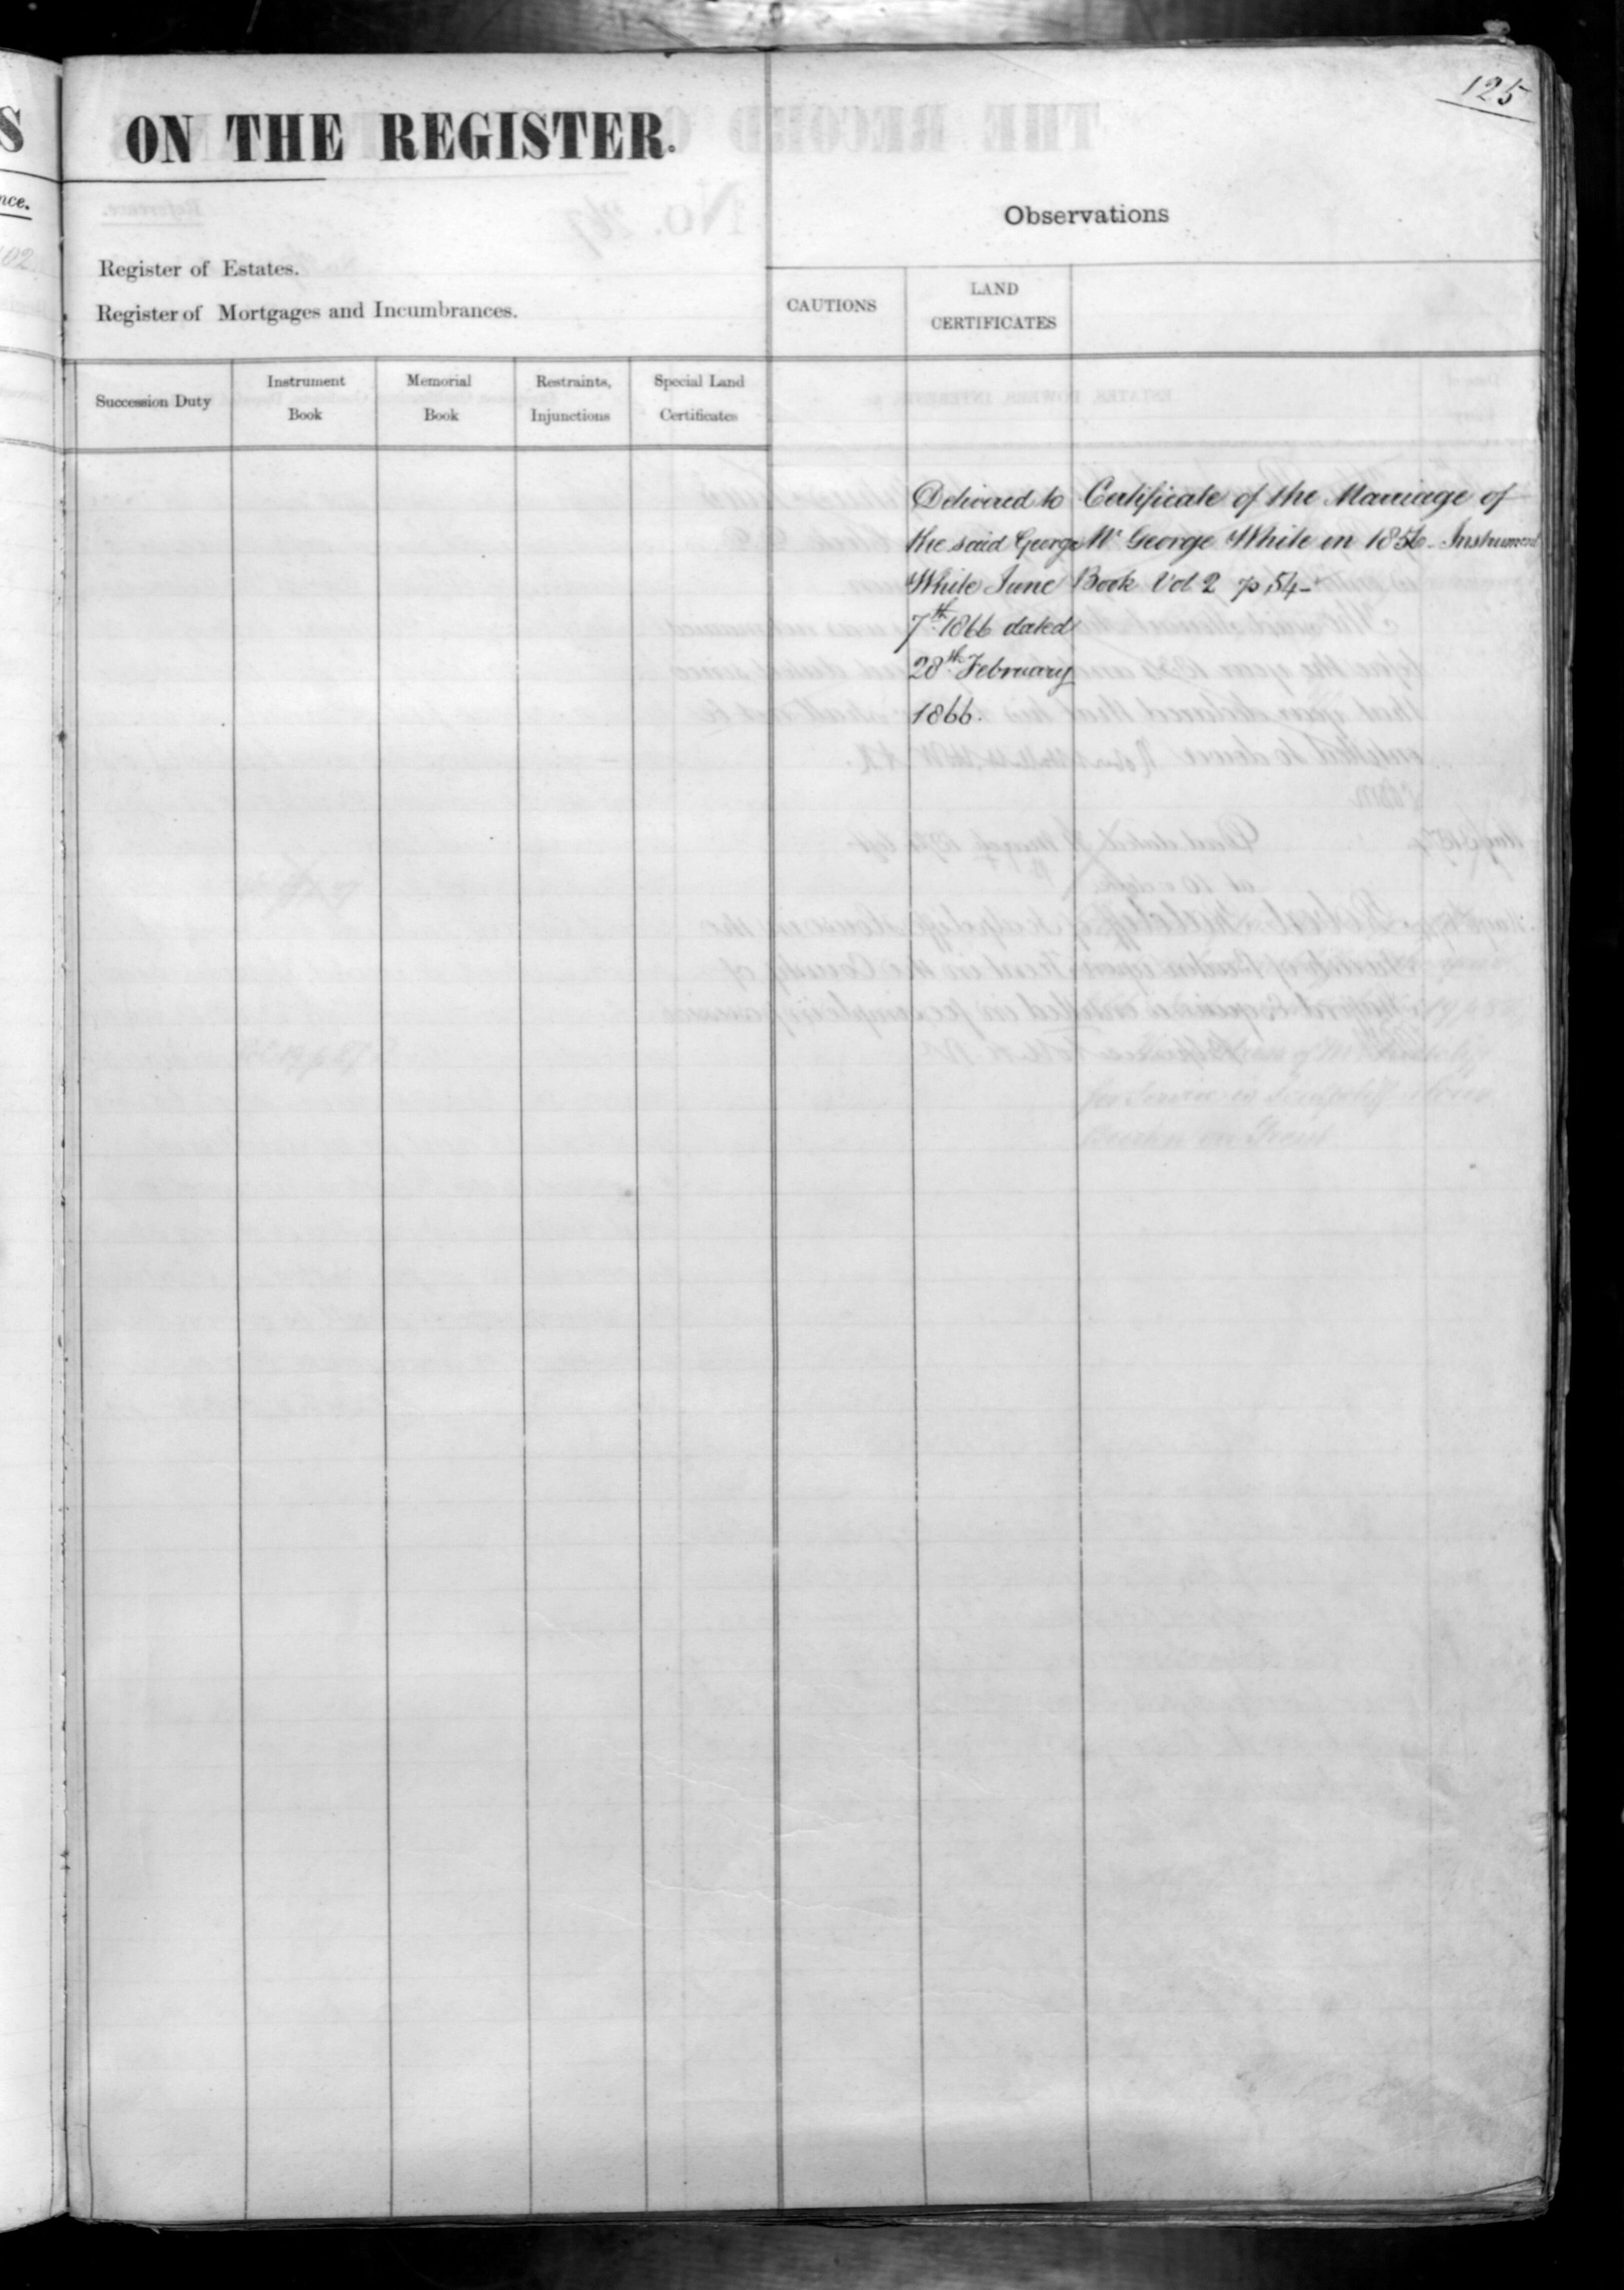 125
ON THE REGISTER.
Observations
Register of Estates.
Register of Mortgages and Incumbrances.
CAUTIONS
LAND
CERTIFICATES
Succession Duty
Instrument
Book
Memorial
Book
Restraints,
Injunctions
Special Land
Certificates
Delivered to
the said George
White June
7th 1866 dated
28th February
1866.
Certificate of the Marriage of
Mr George White in 1856. Instrument
Book Vol 2 p 54